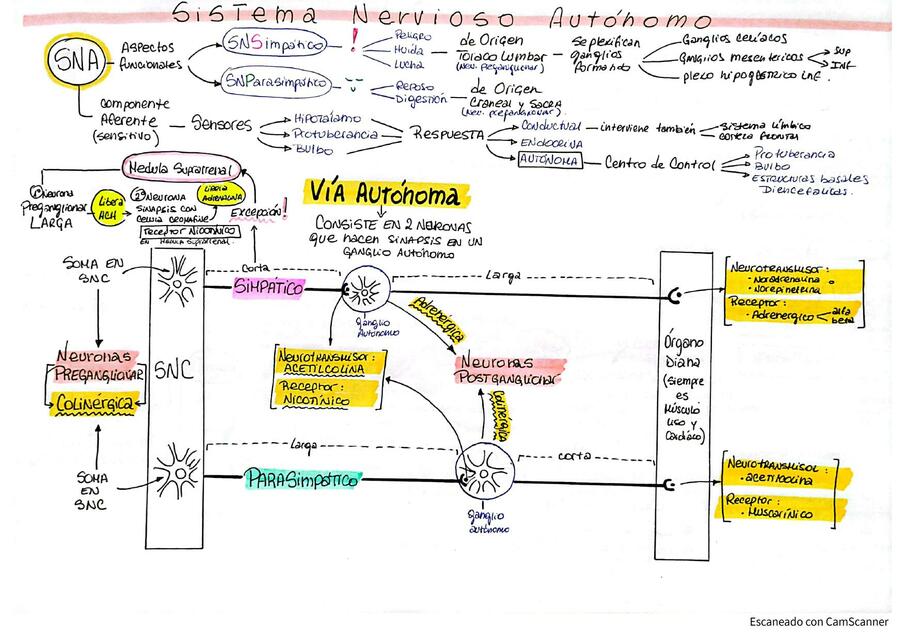 Sistema Nervioso Autónomo
SNA
Aspectos
funcionales
SNSimpático
!
Peligro
Huida
Lucha
de Origen
Toraco Lumbar
(Neu. Preganglionar)
Se plexifican
ganglios
formando
Ganglios celíacos
Ganglios mesentericos
Sup
INF
plexo hipogástrico inf.
SNParasimpático
Reposo
Digestión
de Origen
Craneal y Sacra
(Neu. preganglionar)
Componente
Aferente
(sensitivo)
Sensores
Hipotálamo
Protuberancia
Bulbo
Respuesta
Conductual
interviene también
Sistema límbico
corteza frontal
Endocrina
Autónoma
Centro de Control
Protuberancia
Bulbo
Estructuras basales
Diencefalicas.
Medula Suprarrenal
1º Neurona
Preganglionar
LARGA
Libera
ACH
2º Neurona
sinapsis con
celula cromafine
Receptor Nicotínico
en Medula suprarrenal.
Libera
Adrenalina
Excepción!
Vía Autónoma
Consiste en 2 neuronas
que hacen sinapsis en un
ganglio autónomo
Soma en
SNC
corta
Simpático
Larga
ganglio
Autónomo
Adrenérgica
Neurotransmisor:
· Noradrenalina
· Norepinefrina
Receptor:
· Adrenergico
alfa
beta
Neuronas
Preganglionar
Colinérgica
SNC
Neurotransmisor:
Acetilcolina
Receptor:
Nicotínico
Neuronas
Postganglionar
Colinérgica
Órgano
Diana
(siempre
es
Músculo
liso y
Cardíaco)
Soma
en
SNC
Larga
Parasimpático
corta
ganglio
autónomo
Neurotransmisor:
· acetilcolina
Receptor:
· Muscarínico
Escaneado con CamScanner